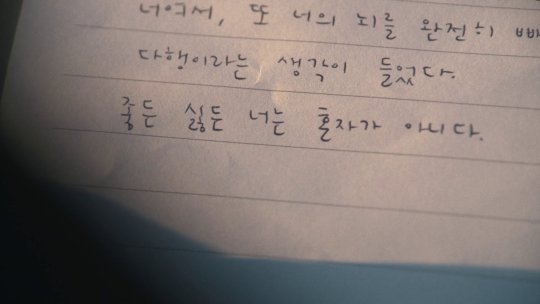 너여서, 또 너의 뇌를 완전히
다행이라는 생각이 들었다.
좋든 싫든 너는 혼자가 아니다.